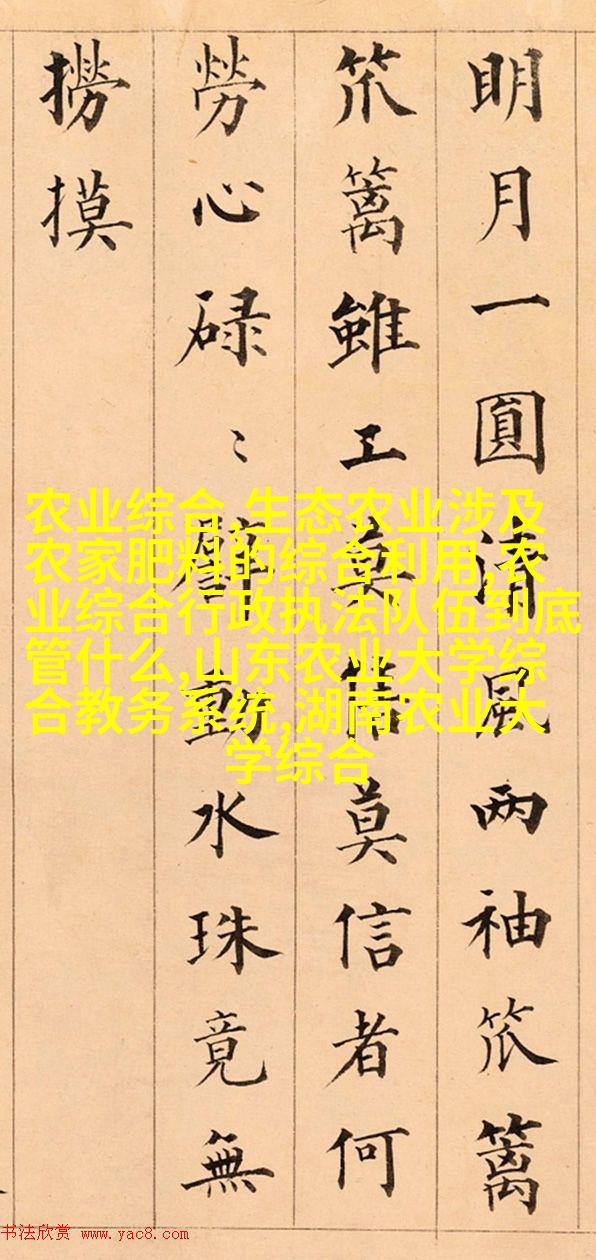 明月一圓清風两袖笊篱
笊篱雖工莫信莫信者何
勞心碌〻動水珠竟無
撈摸
农业综合,生态农业涉及
农家肥料的综合利用,农
业综合行政执法队伍到底
管什么,山东农业大学综
合教务系统,湖南农业大
学综合
书法欣赏 www.yac8.com